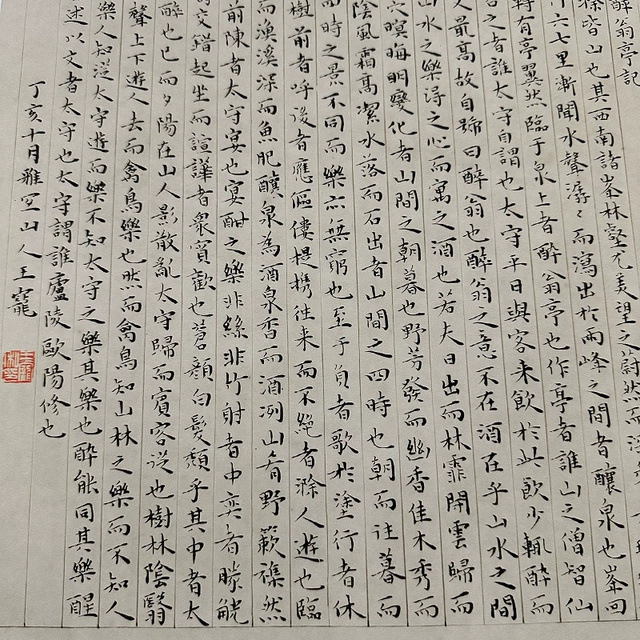 醉翁亭記
滁皆山也其西南諸峯林壑尤美望之蔚然而深
六七里漸聞水聲潺々而瀉出於兩峰之間者釀泉也峯回
有亭翼然臨于泉上者醉翁亭也作亭者誰山之僧智仙
之者誰太守自謂也太守平日與客来飲於此飲少輒醉而
又最高故自號曰醉翁也醉翁之意不在酒在乎山水之間
山水之樂得之心而寓之酒也若夫日出而林霏開雲歸而
穴暝晦明變化者山間之朝暮也野芳發而幽香佳木秀而
陰風霜高潔水落而石出者山間之四時也朝而往暮而
時之景不同而樂亦無窮也至于負者歌於塗行者休
樹前者呼後者應傴僂提携往来而不絕者滁人遊也臨
而漁溪深而魚肥釀泉為酒泉香而酒冽山肴野蔌襍然
前陳者太守宴也宴酣之樂非絲非竹射者中弈者勝觥
交錯起坐而諠譁者衆賓歡也蒼顏白髮頹乎其中者太
醉也已而夕陽在山人影散亂太守歸而賓客從也樹林陰翳
聲上下遊人去而禽鳥樂也然而禽鳥知山林之樂而不知人
樂人知從太守遊而樂不知太守之樂其樂也醉能同其樂醒
述以文者太守也太守謂誰廬陵歐陽修也
丁亥十月雅宜山人王寵